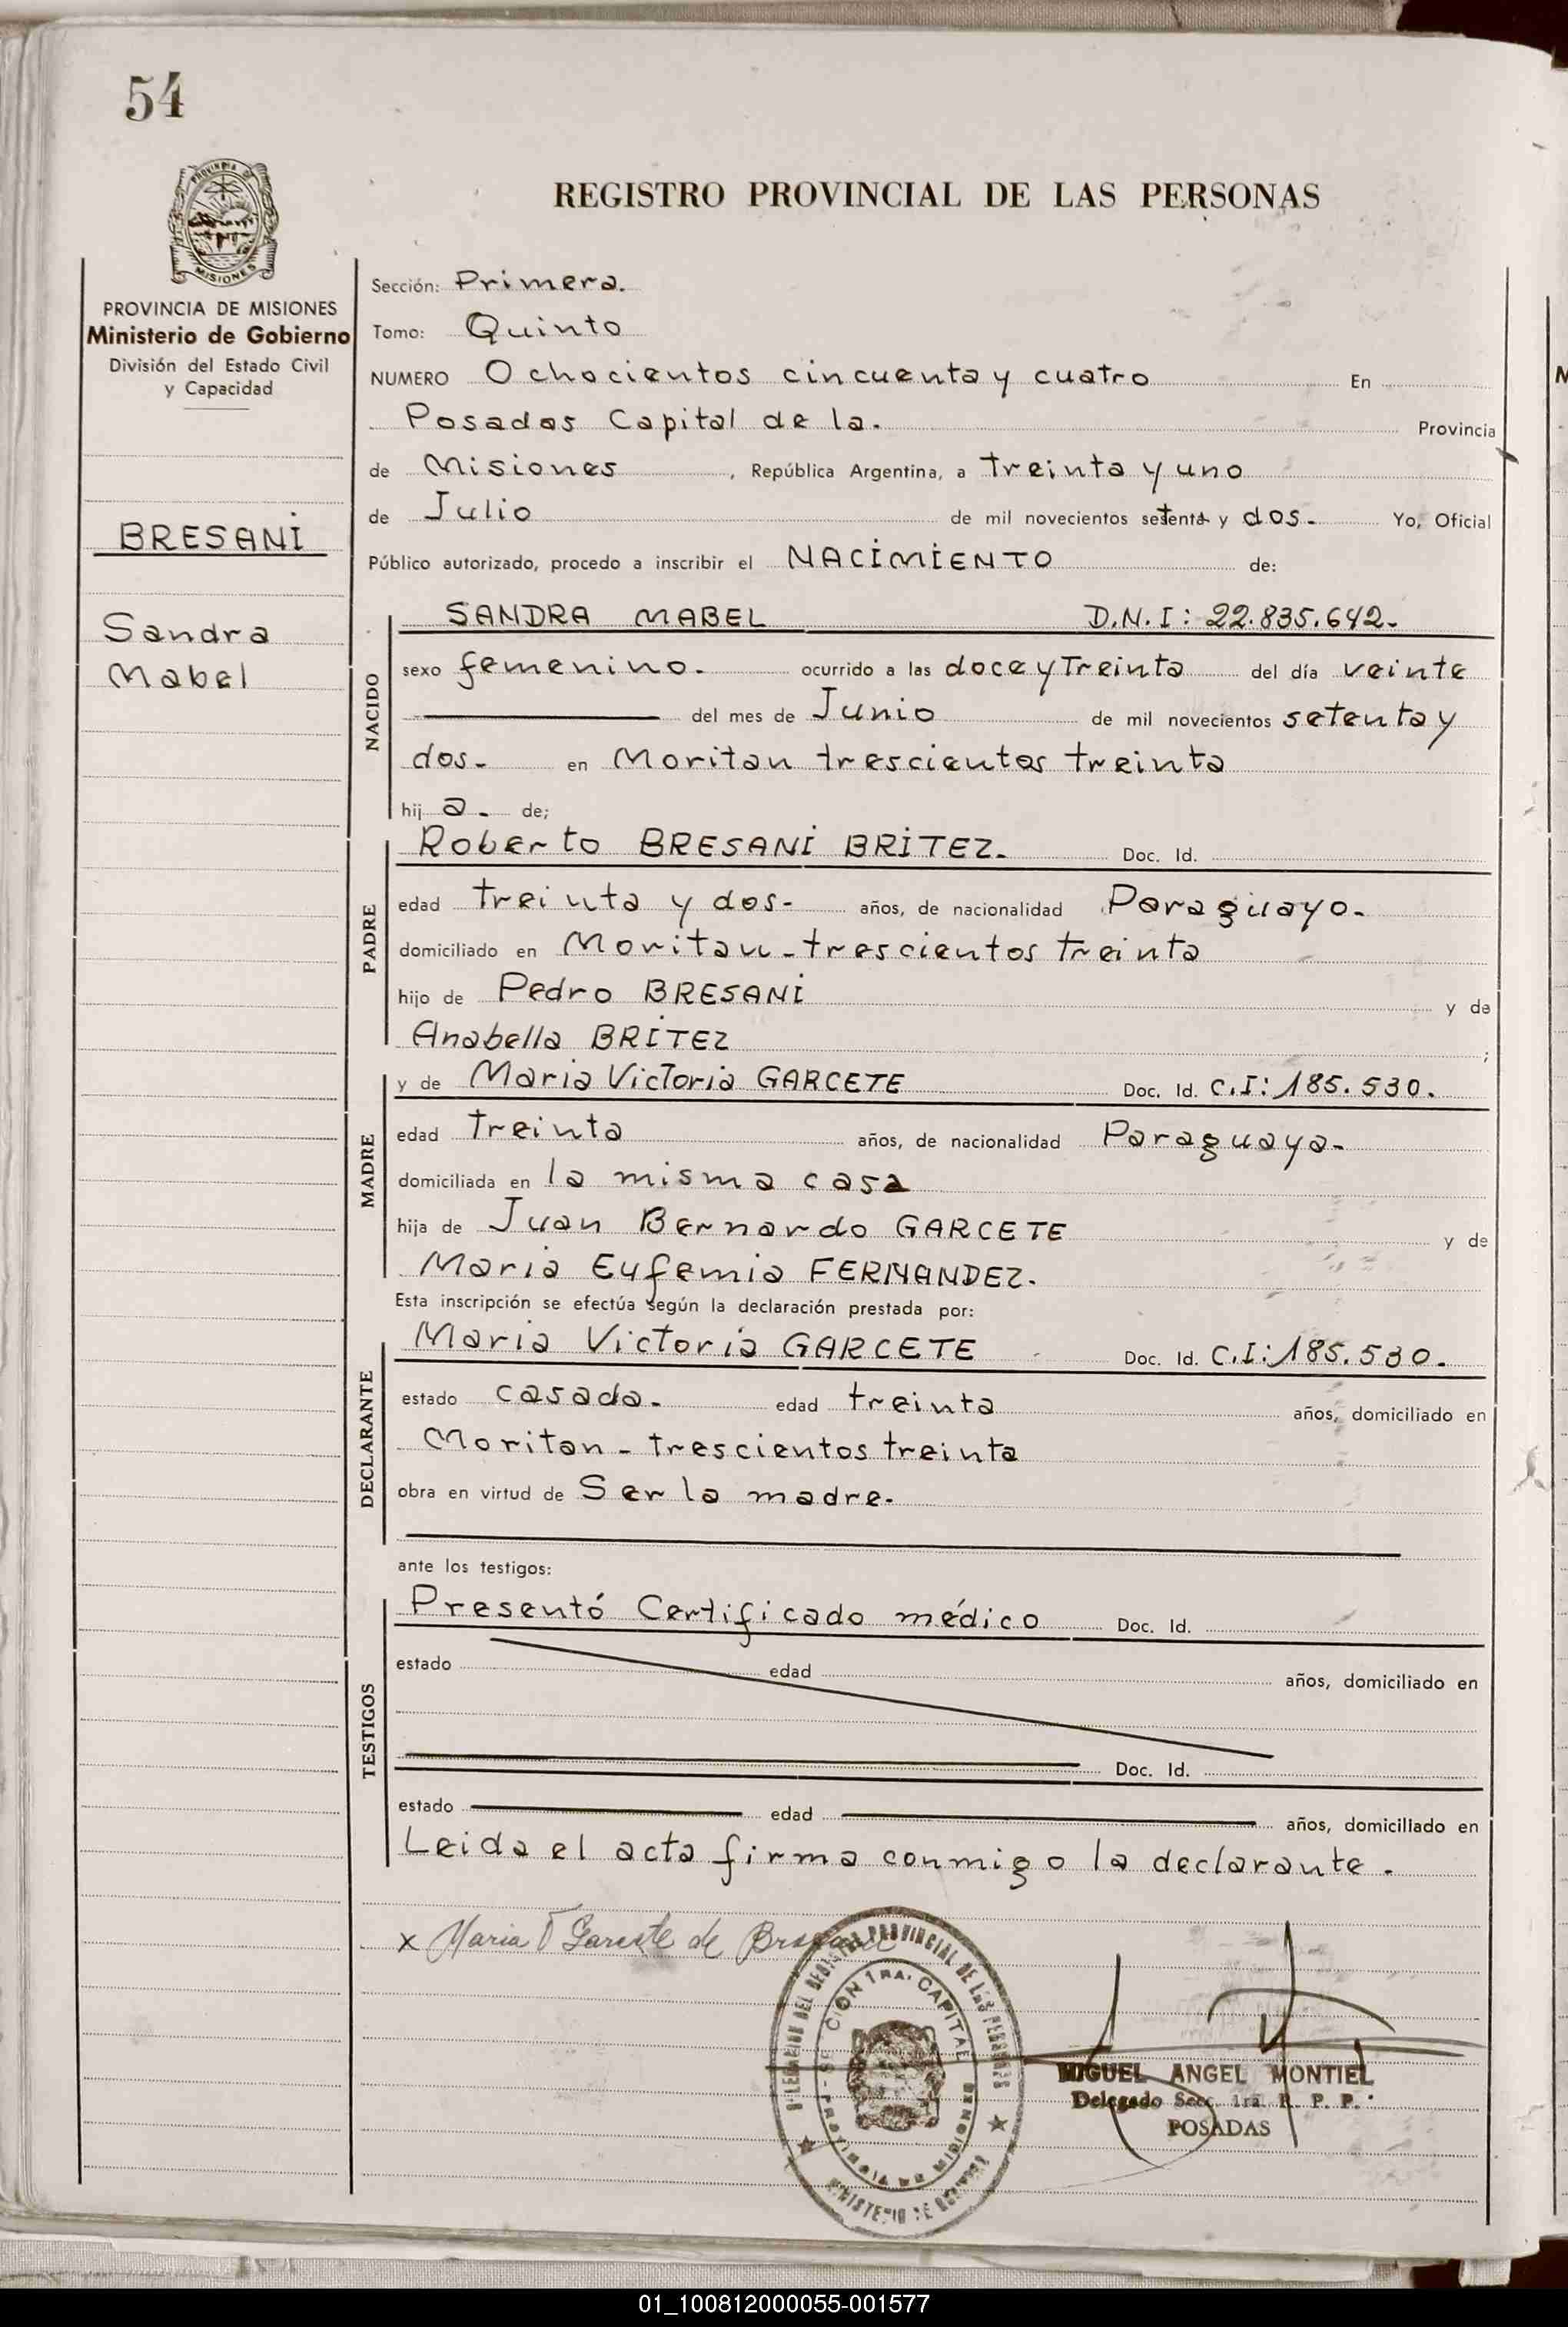 54
REGISTRO PROVINCIAL DE LAS PERSONAS
PROVINCIA DE MISIONES
Ministerio de Gobierno
División del Estado Civil
y Capacidad
BRESANI
Sandra
Mabel
Sección: Primera.
Tomo: Quinto
NUMERO Ochocientos cincuenta y cuatro En
Posadas Capital de la. Provincia
de Misiones, República Argentina, a treinta y uno
de Julio de mil novecientos setenta y dos. Yo, Oficial
Público autorizado, procedo a inscribir el NACIMIENTO de:
NACIDO
SANDRA MABEL D.N.I: 22.835.642.
sexo femenino. ocurrido a las doce y Treinta del día veinte
del mes de Junio de mil novecientos setenta y
dos. en Moritan trescientos treinta
hij a. de;
PADRE
Roberto BRESANI BRITEZ. Doc. Id.
edad treinta y dos- años, de nacionalidad Paraguayo.
domiciliado en Moritan - trescientos treinta
hijo de Pedro BRESANI y de
Anabella BRITEZ ;
MADRE
y de Maria Victoria GARCETE Doc. Id. C.I: 185.530.
edad treinta años, de nacionalidad Paraguaya-
domiciliada en la misma casa
hija de Juan Bernardo GARCETE y de
Maria Eufemia FERNANDEZ.
Esta inscripción se efectúa según la declaración prestada por:
DECLARANTE
Maria Victoria GARCETE Doc. Id. C.I: 185.530.
estado casada. edad treinta años, domiciliado en
Moritan - trescientos treinta
obra en virtud de Ser la madre.
ante los testigos:
TESTIGOS
Presentó Certificado médico Doc. Id.
estado edad años, domiciliado en
Doc. Id.
estado edad años, domiciliado en
Leida el acta firma conmigo la declarante.
x Maria V Garcete de
MIGUEL ANGEL MONTIEL
Delegado Secc. 1ra. R. P. P.
POSADAS
01_100812000055-001577